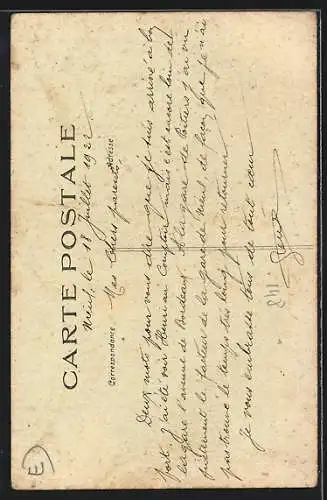 CARTE POSTALE
Correspondance
Adresse
Nieul, le 18 Juillet 1922
Mes Chers parents
Deux mots pour vous dire que je suis arrivé à bon
port. J'ai été voir Henri au Comptoir mais c'est encore loin de
la gare l'avenue de Bordeaux. A la gare de Poitiers j'ai vu
justement le facteur de la gare de Nieul, de façon que je n'ai
pas trouvé le temps très long pour retourner.
Je vous embrasse tous de tout cœur
148
E